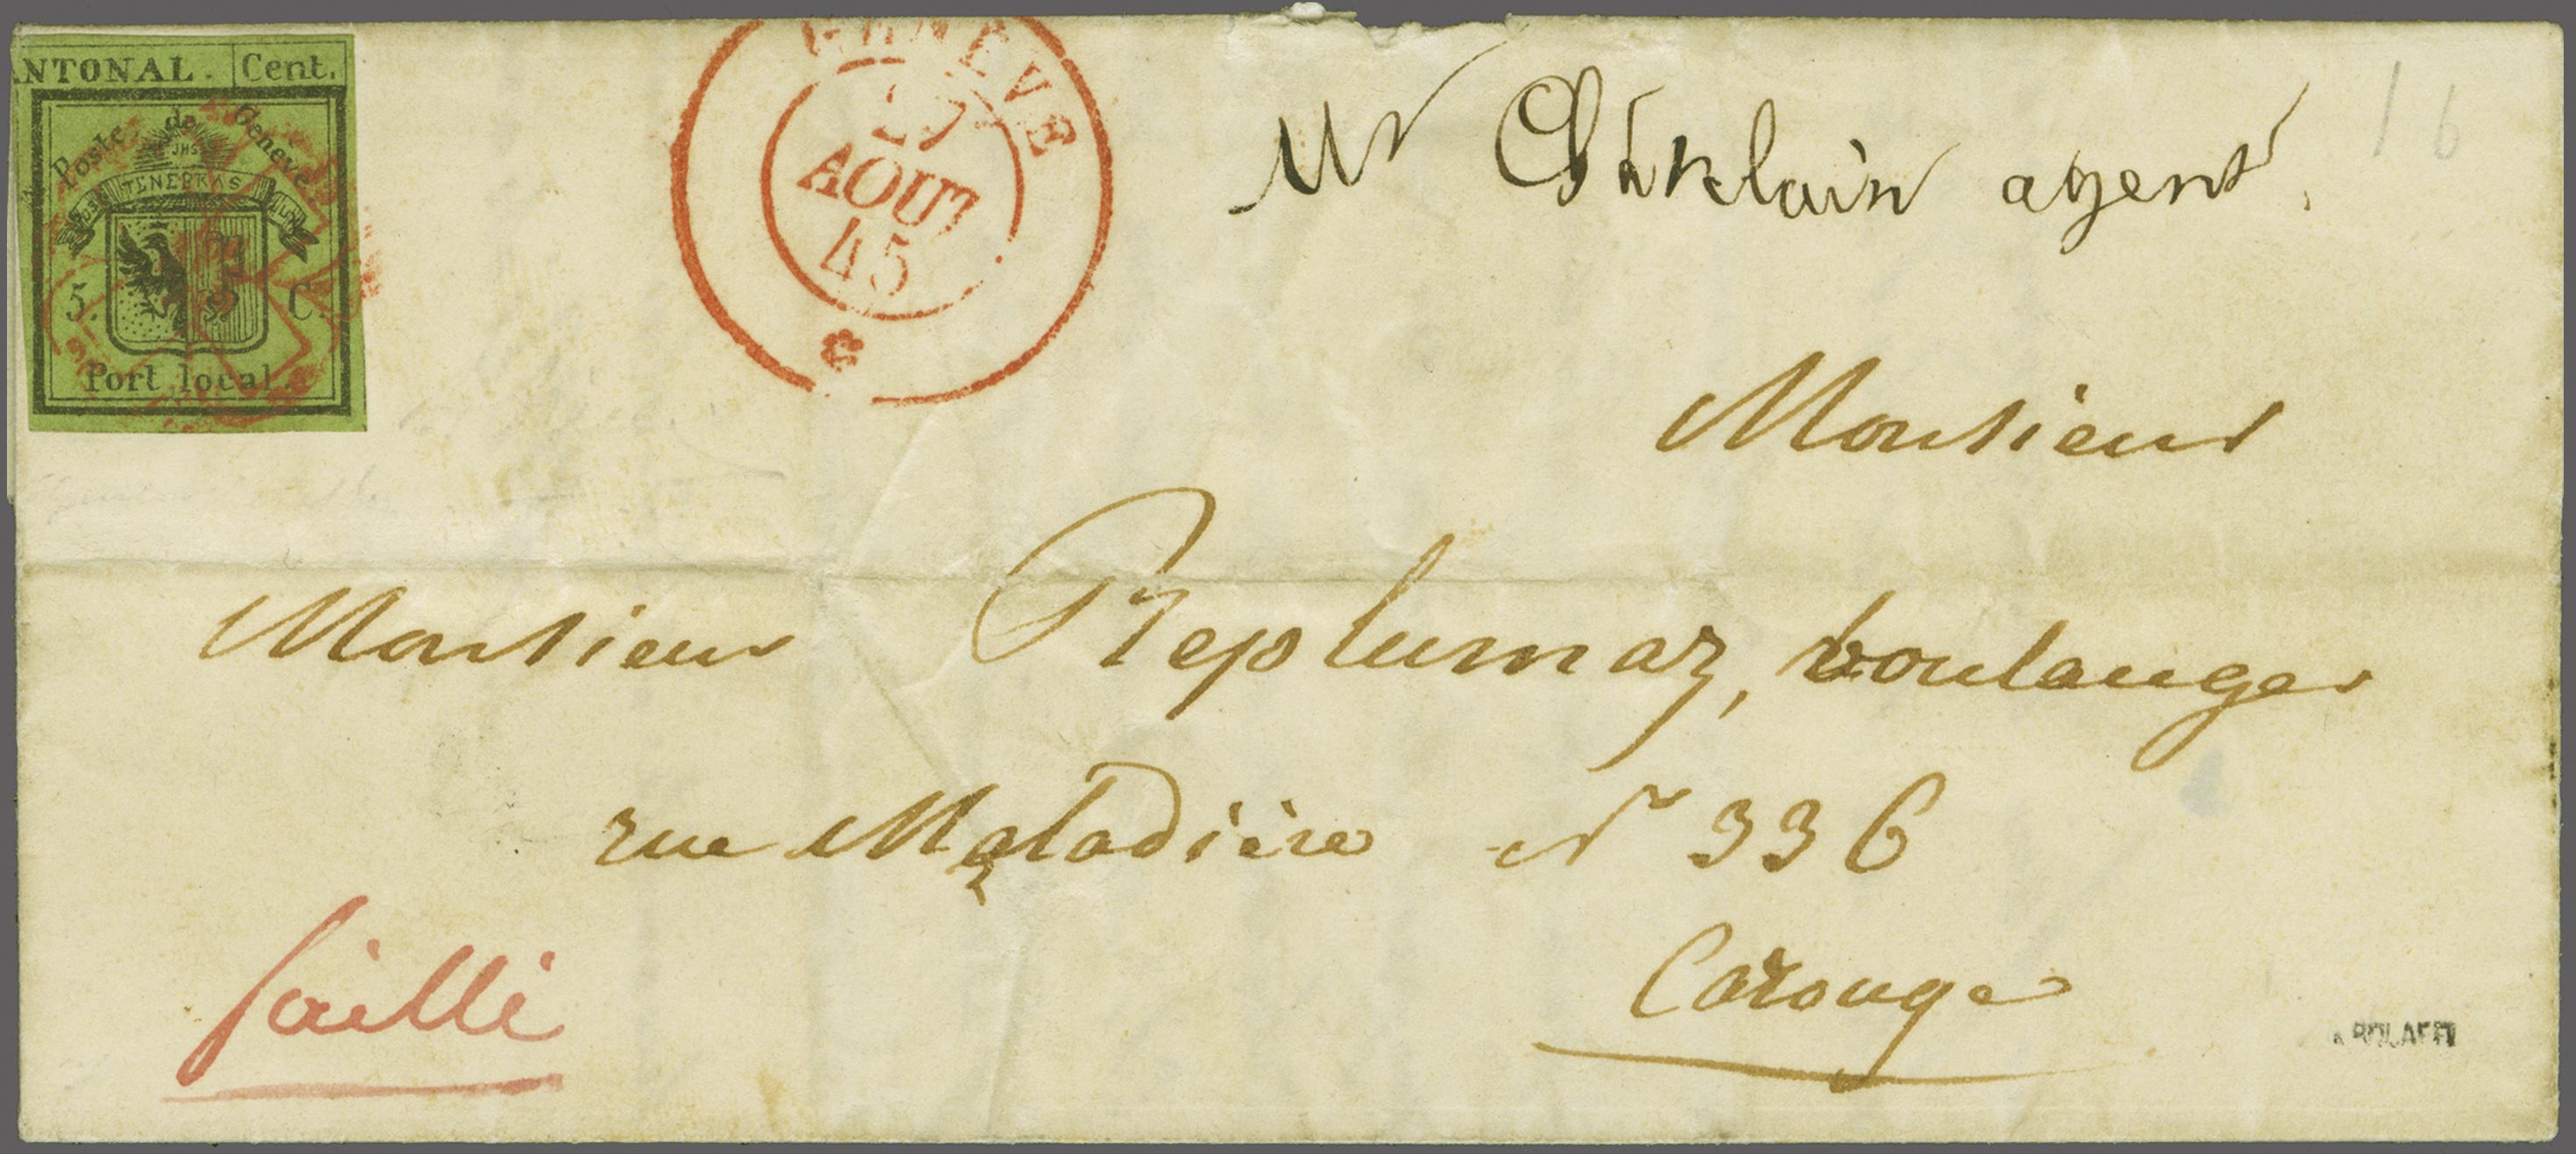 NTONAL. Cent.
Poste de Genève
JHS
TENEBRAS
5. C.
Port local.
GENÈVE
27
AOUT
45
Mr Châtelain agent.
16
Monsieur
Monsieur Replumaz, boulanger
rue Maladière N 336
Carouge
failli